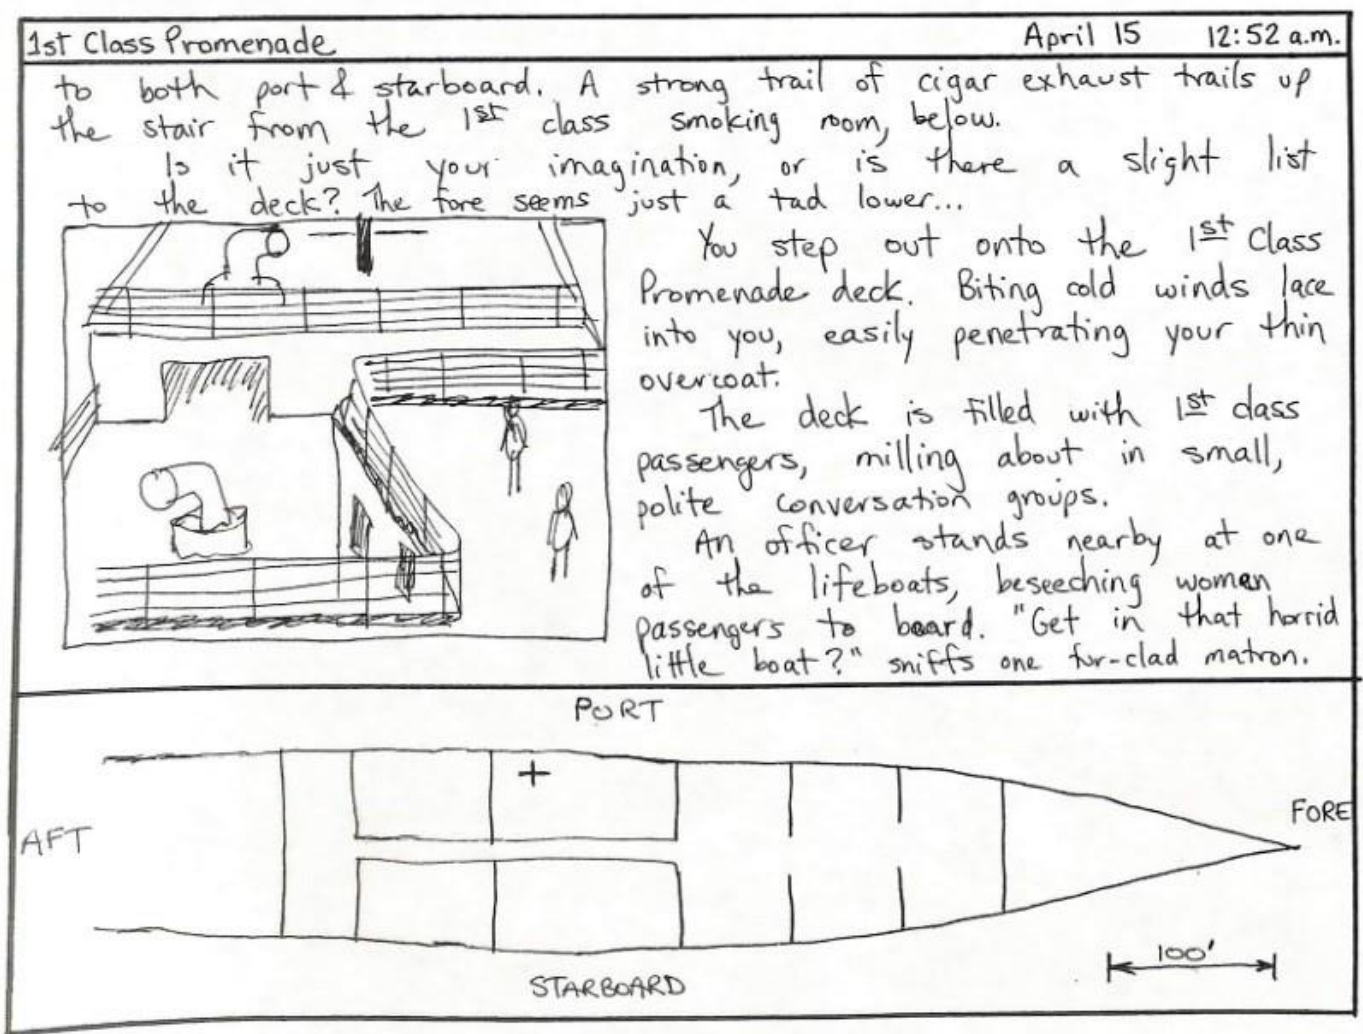 1st Class Promenade April 15 12:52 a.m.
to both port & starboard. A strong trail of cigar exhaust trails up
the stair from the 1st class smoking room, below.
Is it just your imagination, or is there a slight list
to the deck? The fore seems just a tad lower...
You step out onto the 1st Class
Promenade deck. Biting cold winds lace
into you, easily penetrating your thin
overcoat.
The deck is filled with 1st class
passengers, milling about in small,
polite conversation groups.
An officer stands nearby at one
of the lifeboats, beseeching women
passengers to board. "Get in that horrid
little boat?" sniffs one fur-clad matron.
PORT
AFT
FORE
100'
STARBOARD